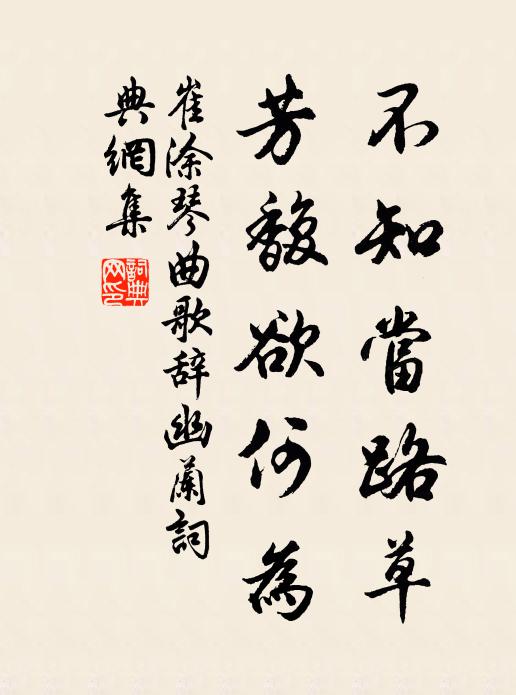 不知當路草
芳馥欲何為
崔涂琴曲歌辞幽蘭詞
典網集
詞典
网印